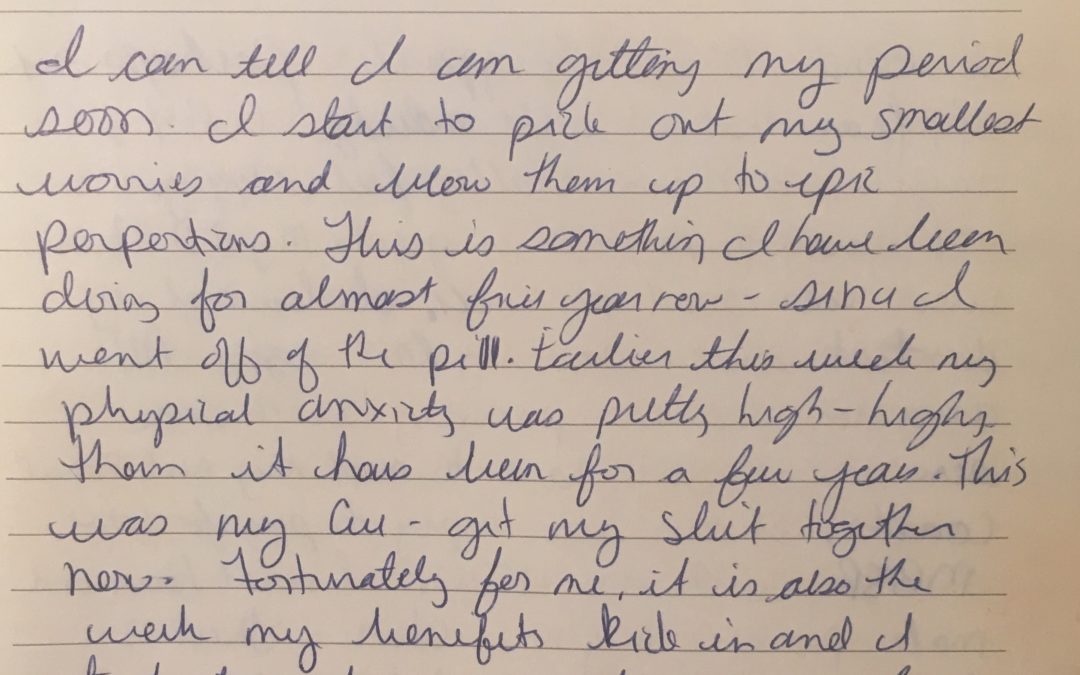 I can tell I am getting my period
soon. I start to pick out my smallest
worries and blow them up to epic
perportions. This is something I have been
doing for almost five year now - since I
went off of the pill. Earlier this week my
physical anxiety was pretty high - higher
than it has been for a few years. This
was my cue - get my shit together
now. Fortunately for me, it is also the
week my benefits kick in and I